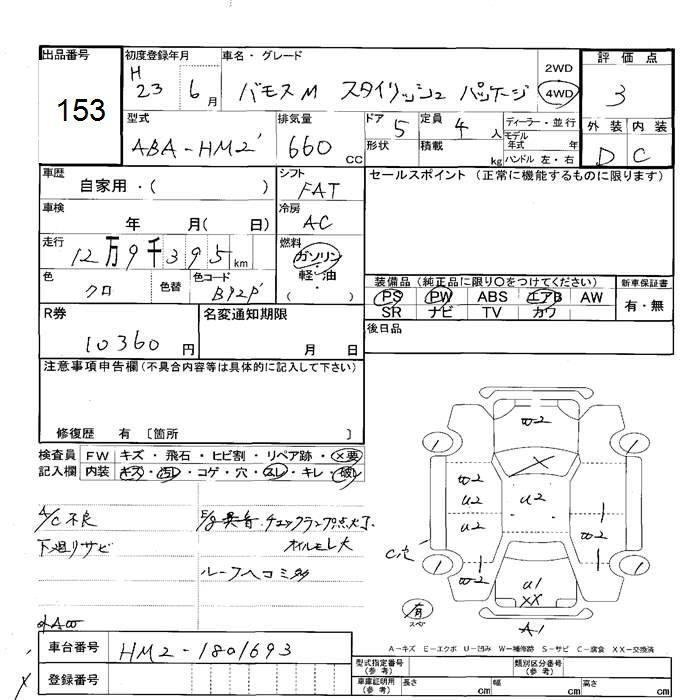 出品番号
153
初度登録年月
H 23 6月
車名・グレード
バモスM スタイリッシュ パッケージ
2WD
4WD
評価点
3
外装 内装
D C
型式
ABA-HM2
排気量
660 CC
ドア 5
形状
定員 4 人
積載 kg
ディーラー・並行
モデル年式 年
ハンドル 左・右
車歴
自家用・( )
シフト
FAT
セールスポイント (正常に機能するものに限ります)
車検
年 月( 日)
冷房
AC
走行
12万9千395km
燃料
ガソリン
軽・油
( )
色
クロ
色替
色コード
B92P
装備品 (純正品に限り○をつけてください)
PS PW ABS エアB AW
SR ナビ TV カワ
新車保証書
有・無
R券
10360 円
名変通知期限
月 日
後日品
注意事項申告欄(不具合内容等は具体的に記入して下さい)
修復歴 有 〔箇所 〕
検査員記入欄
FW キズ・飛石・ヒビ割・リペア跡・×要
内装 キズ・汚レ・コゲ・穴・スレ・キレ・破レ
A/C不良
下廻りサビ
E/g異音・チェックランプ点灯
オイルモレ大
ルーフヘコミ
社AW
W2
W2
U2
U2
U2
W2
W2
U1
XX
A1
有
スペ
A-キズ E-エクボ U-凹み W-補修跡 S-サビ C-腐食 XX-交換済
車台番号
HM2-1801693
登録番号
型式指定番号(参考)
類別区分番号(参考)
車庫証明用(参考)
長さ cm 幅 cm 高さ cm